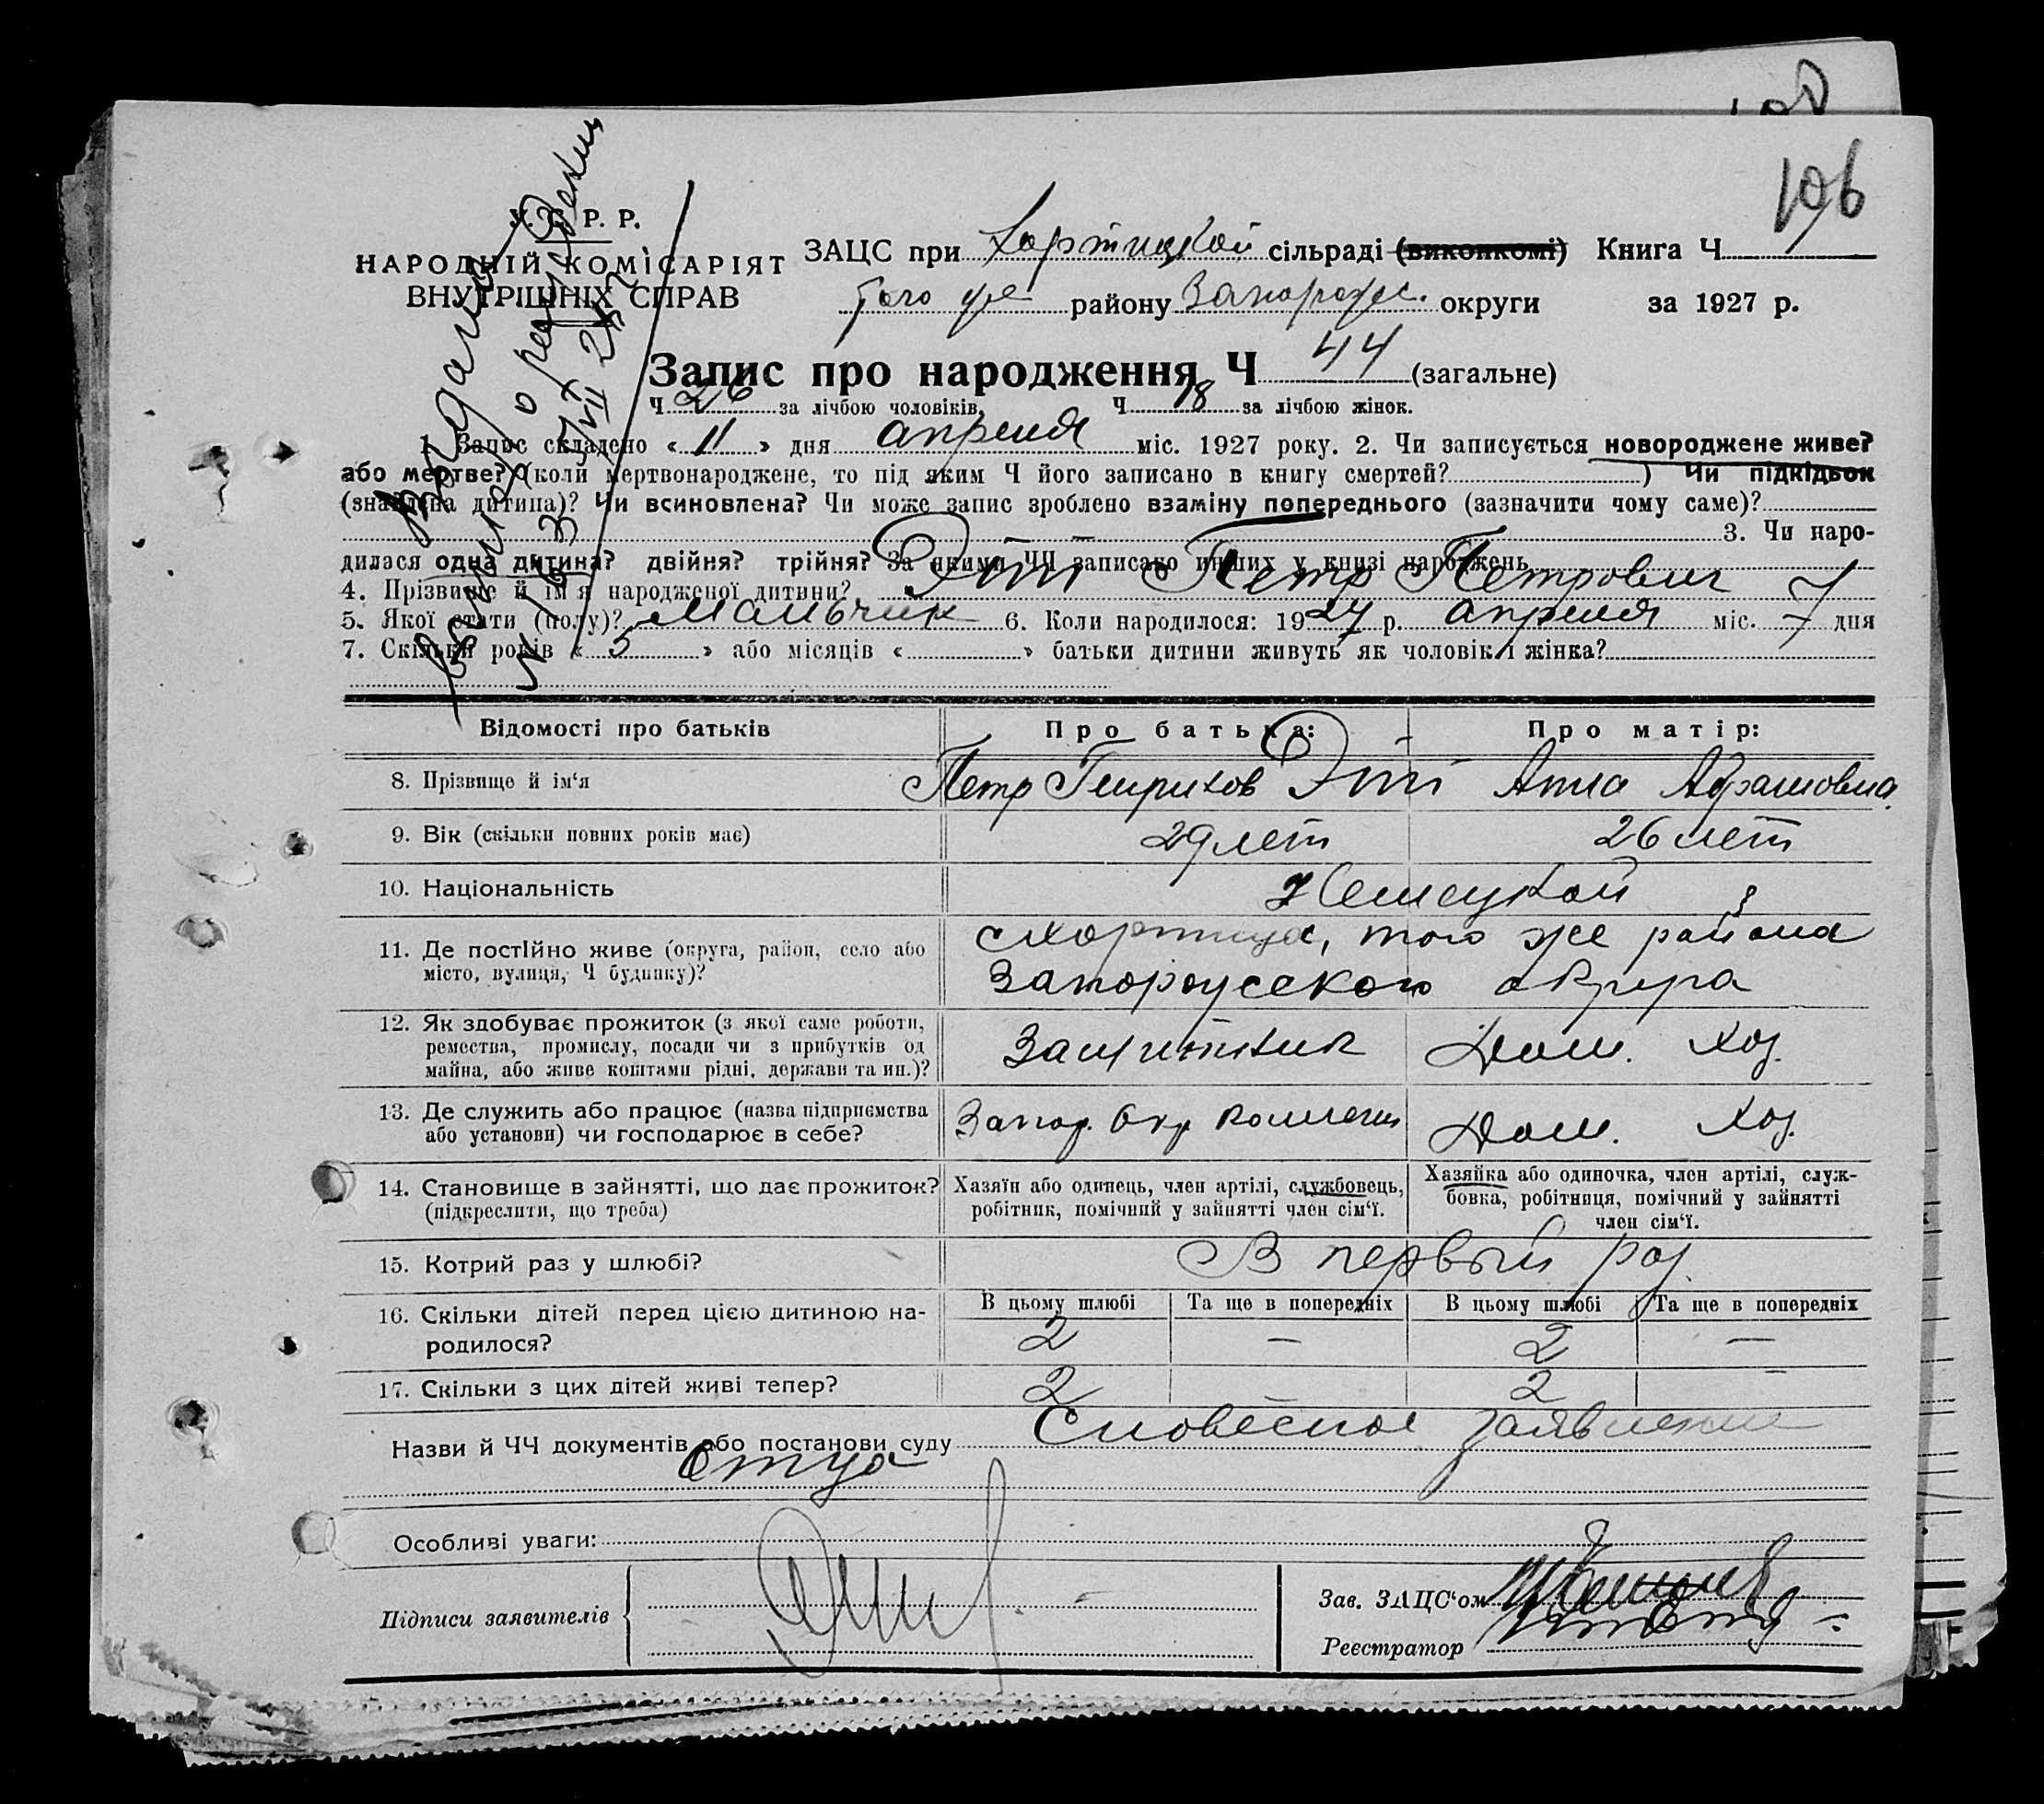 106
У. С. Р. Р.
НАРОДНІЙ КОМІСАРІЯТ
ВНУТРІШНІХ СПРАВ
ЗАЦС при Хортицкой сільраді (виконкомі) Книга Ч.
того же району Запорожс. округи за 1927 р.
Запис про народження Ч 44 (загальне)
Ч 26 за лічбою чоловіків, Ч 18 за лічбою жінок.
1. Запис складено « 11 » дня апреля міс. 1927 року. 2. Чи записується новороджене живе?
або мертве? (коли мертвонароджене, то під яким Ч його записано в книгу смертей? ) Чи підкідьок
(знайдена дитина)? Чи всиновлена? Чи може запис зроблено взаміну попереднього (зазначити чому саме)?
3. Чи наро-
дилася одна дитина? двійня? трійня? За якими ЧЧ записано инших у книзі народжень
4. Прізвище й ім'я народженої дитини? Петр Петрович
5. Якої стати (полу)? мальчик 6. Коли народилося: 1927 р. апреля міс. 7 дня
7. Скільки років « 5 » або місяців « » батьки дитини живуть як чоловік і жінка?
Відомості про батьків Про батька: Про матір:
8. Прізвище й ім'я Петр Анна Абрамовна
9. Вік (скільки повних років має) 29 лет 26 лет
10. Національність Немецкой
11. Де постійно живе (округа, район, село або
місто, вулиця, Ч будинку)?
с Хортица, того же района
Запорожского округа
12. Як здобуває прожиток (з якої саме роботи,
ремества, промислу, посади чи з прибутків од
майна, або живе коштами рідні, держави та ин.)?
Защитник Дом. хоз.
13. Де служить або працює (назва підприємства
або установи) чи господарює в себе?
Запор. Окр Дом. хоз.
14. Становище в зайнятті, що дає прожиток?
(підкреслити, що треба)
Хазяїн або одинець, член артілі, службовець,
робітник, помічний у зайнятті член сім'ї.
Хазяйка або одиночка, член артілі, служ-
бовка, робітниця, помічний у зайнятті
член сім'ї.
15. Котрий раз у шлюбі? В первый раз
16. Скільки дітей перед цією дитиною на-
родилося?
В цьому шлюбі Та ще в попередніх В цьому шлюбі Та ще в попередніх
2 — 2 —
17. Скільки з цих дітей живі тепер? 2 2 —
Назви й ЧЧ документів або постанови суду Словесное заявление
отца
Особливі уваги:
Підписи заявителів
Зав. ЗАЦС'ом
Реєстратор